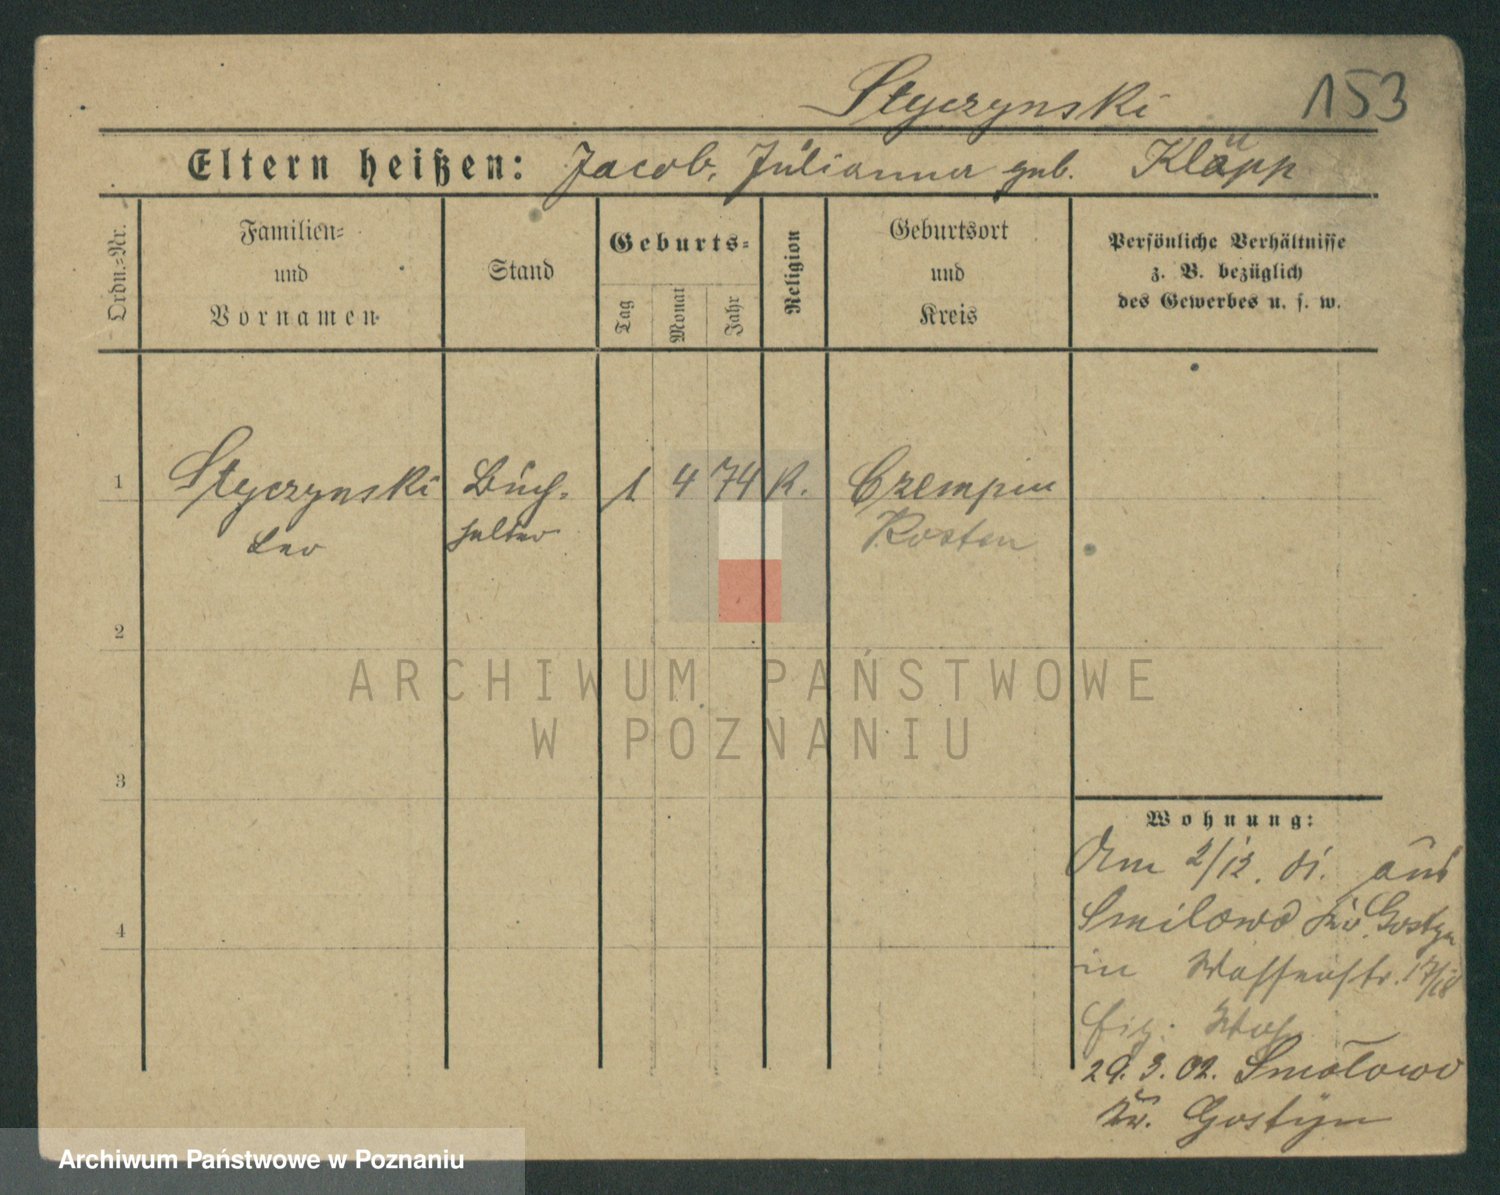 Styczynski 153
Eltern heißen: Jacob, Julianna geb. Klupp
Ordn.-Nr.
Familien-
und
Vornamen
Stand
Geburts-
Tag
Monat
Jahr
Religion
Geburtsort
und
Kreis
Persönliche Verhältnisse
z. B. bezüglich
des Gewerbes u. s. w.
1 Styczynski Buch- 1 4 74 K. Czempin
Leo halter Kosten
2
ARCHIWUM PAŃSTWOWE
W POZNANIU
3
Wohnung:
Am 2/12. 01. aus
Smilowo Kr. Gostyn
4
in 17/18
Eig. Woh
29. 3. 02. Smolowo
Kr. Gostyn
Archiwum Państwowe w Poznaniu